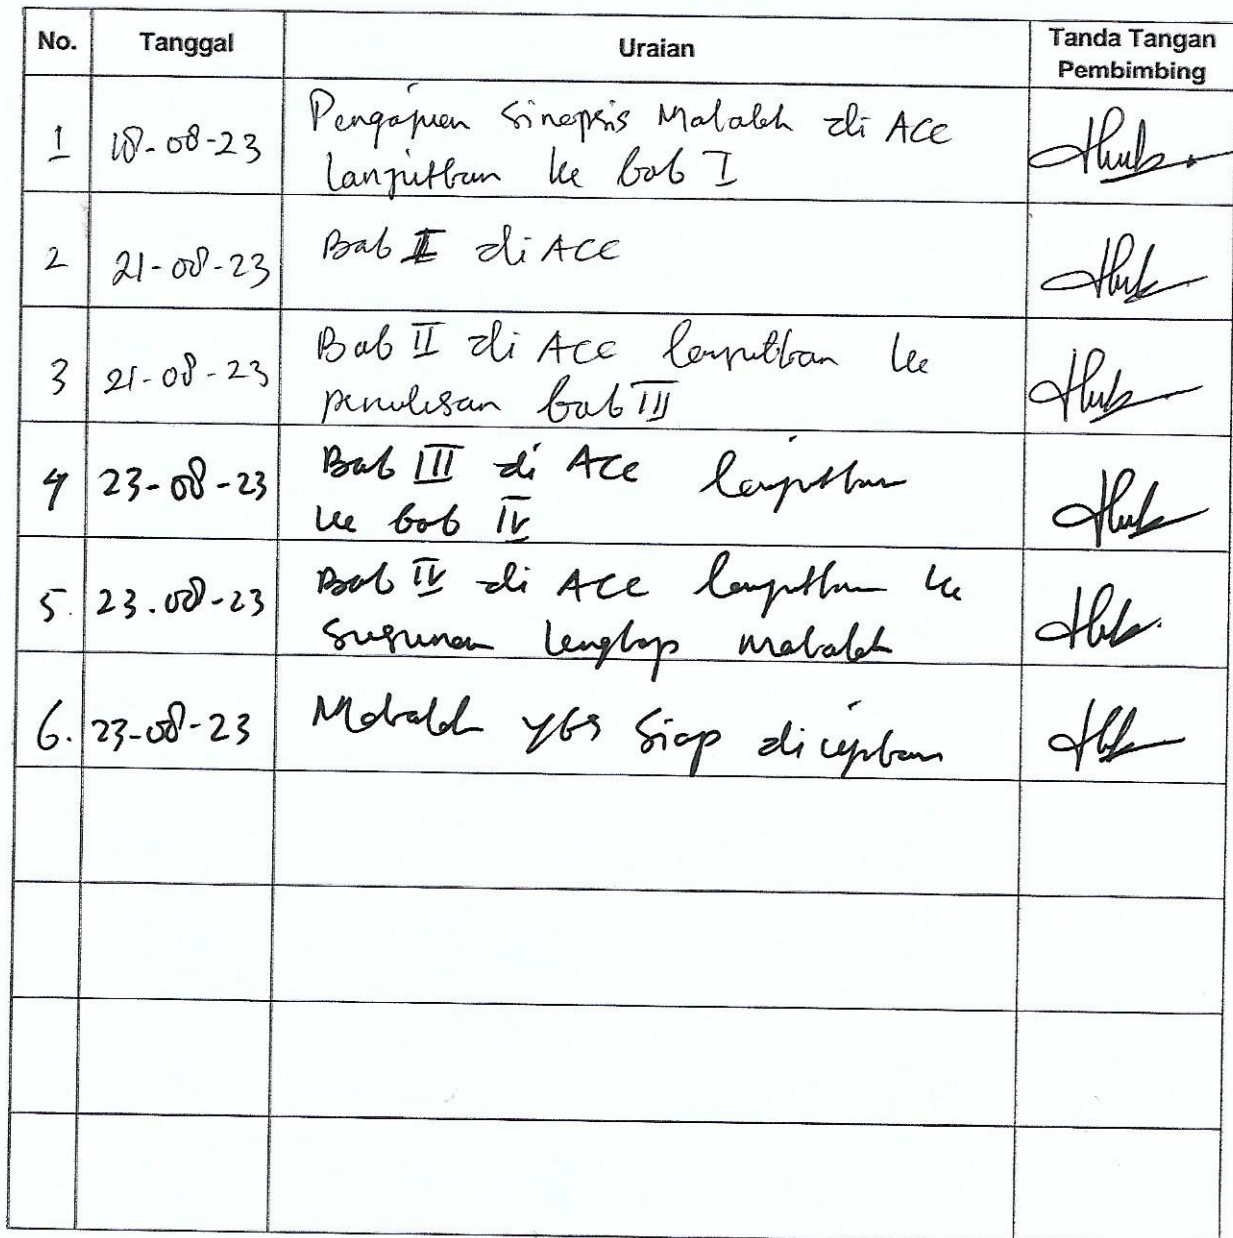 No. Tanggal Uraian Tanda Tangan
Pembimbing
1 18-08-23 Pengajuan Sinopsis Makalah di ACC
lanjutkan ke bab I
2 21-08-23 Bab I di ACC
3 21-08-23 Bab II di ACC lanjutkan ke
penulisan bab III
4 23-08-23 Bab III di ACC lanjutkan
ke bab IV
5. 23.08-23 Bab IV di ACC lanjutkan ke
susunan lengkap makalah
6. 23-08-23 Makalah siap